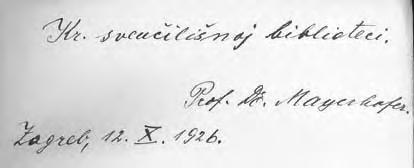 Kr. sveučilišnoj biblioteci.
Prof. Dr. Mayerhofer.
Zagreb, 12. X. 1926.